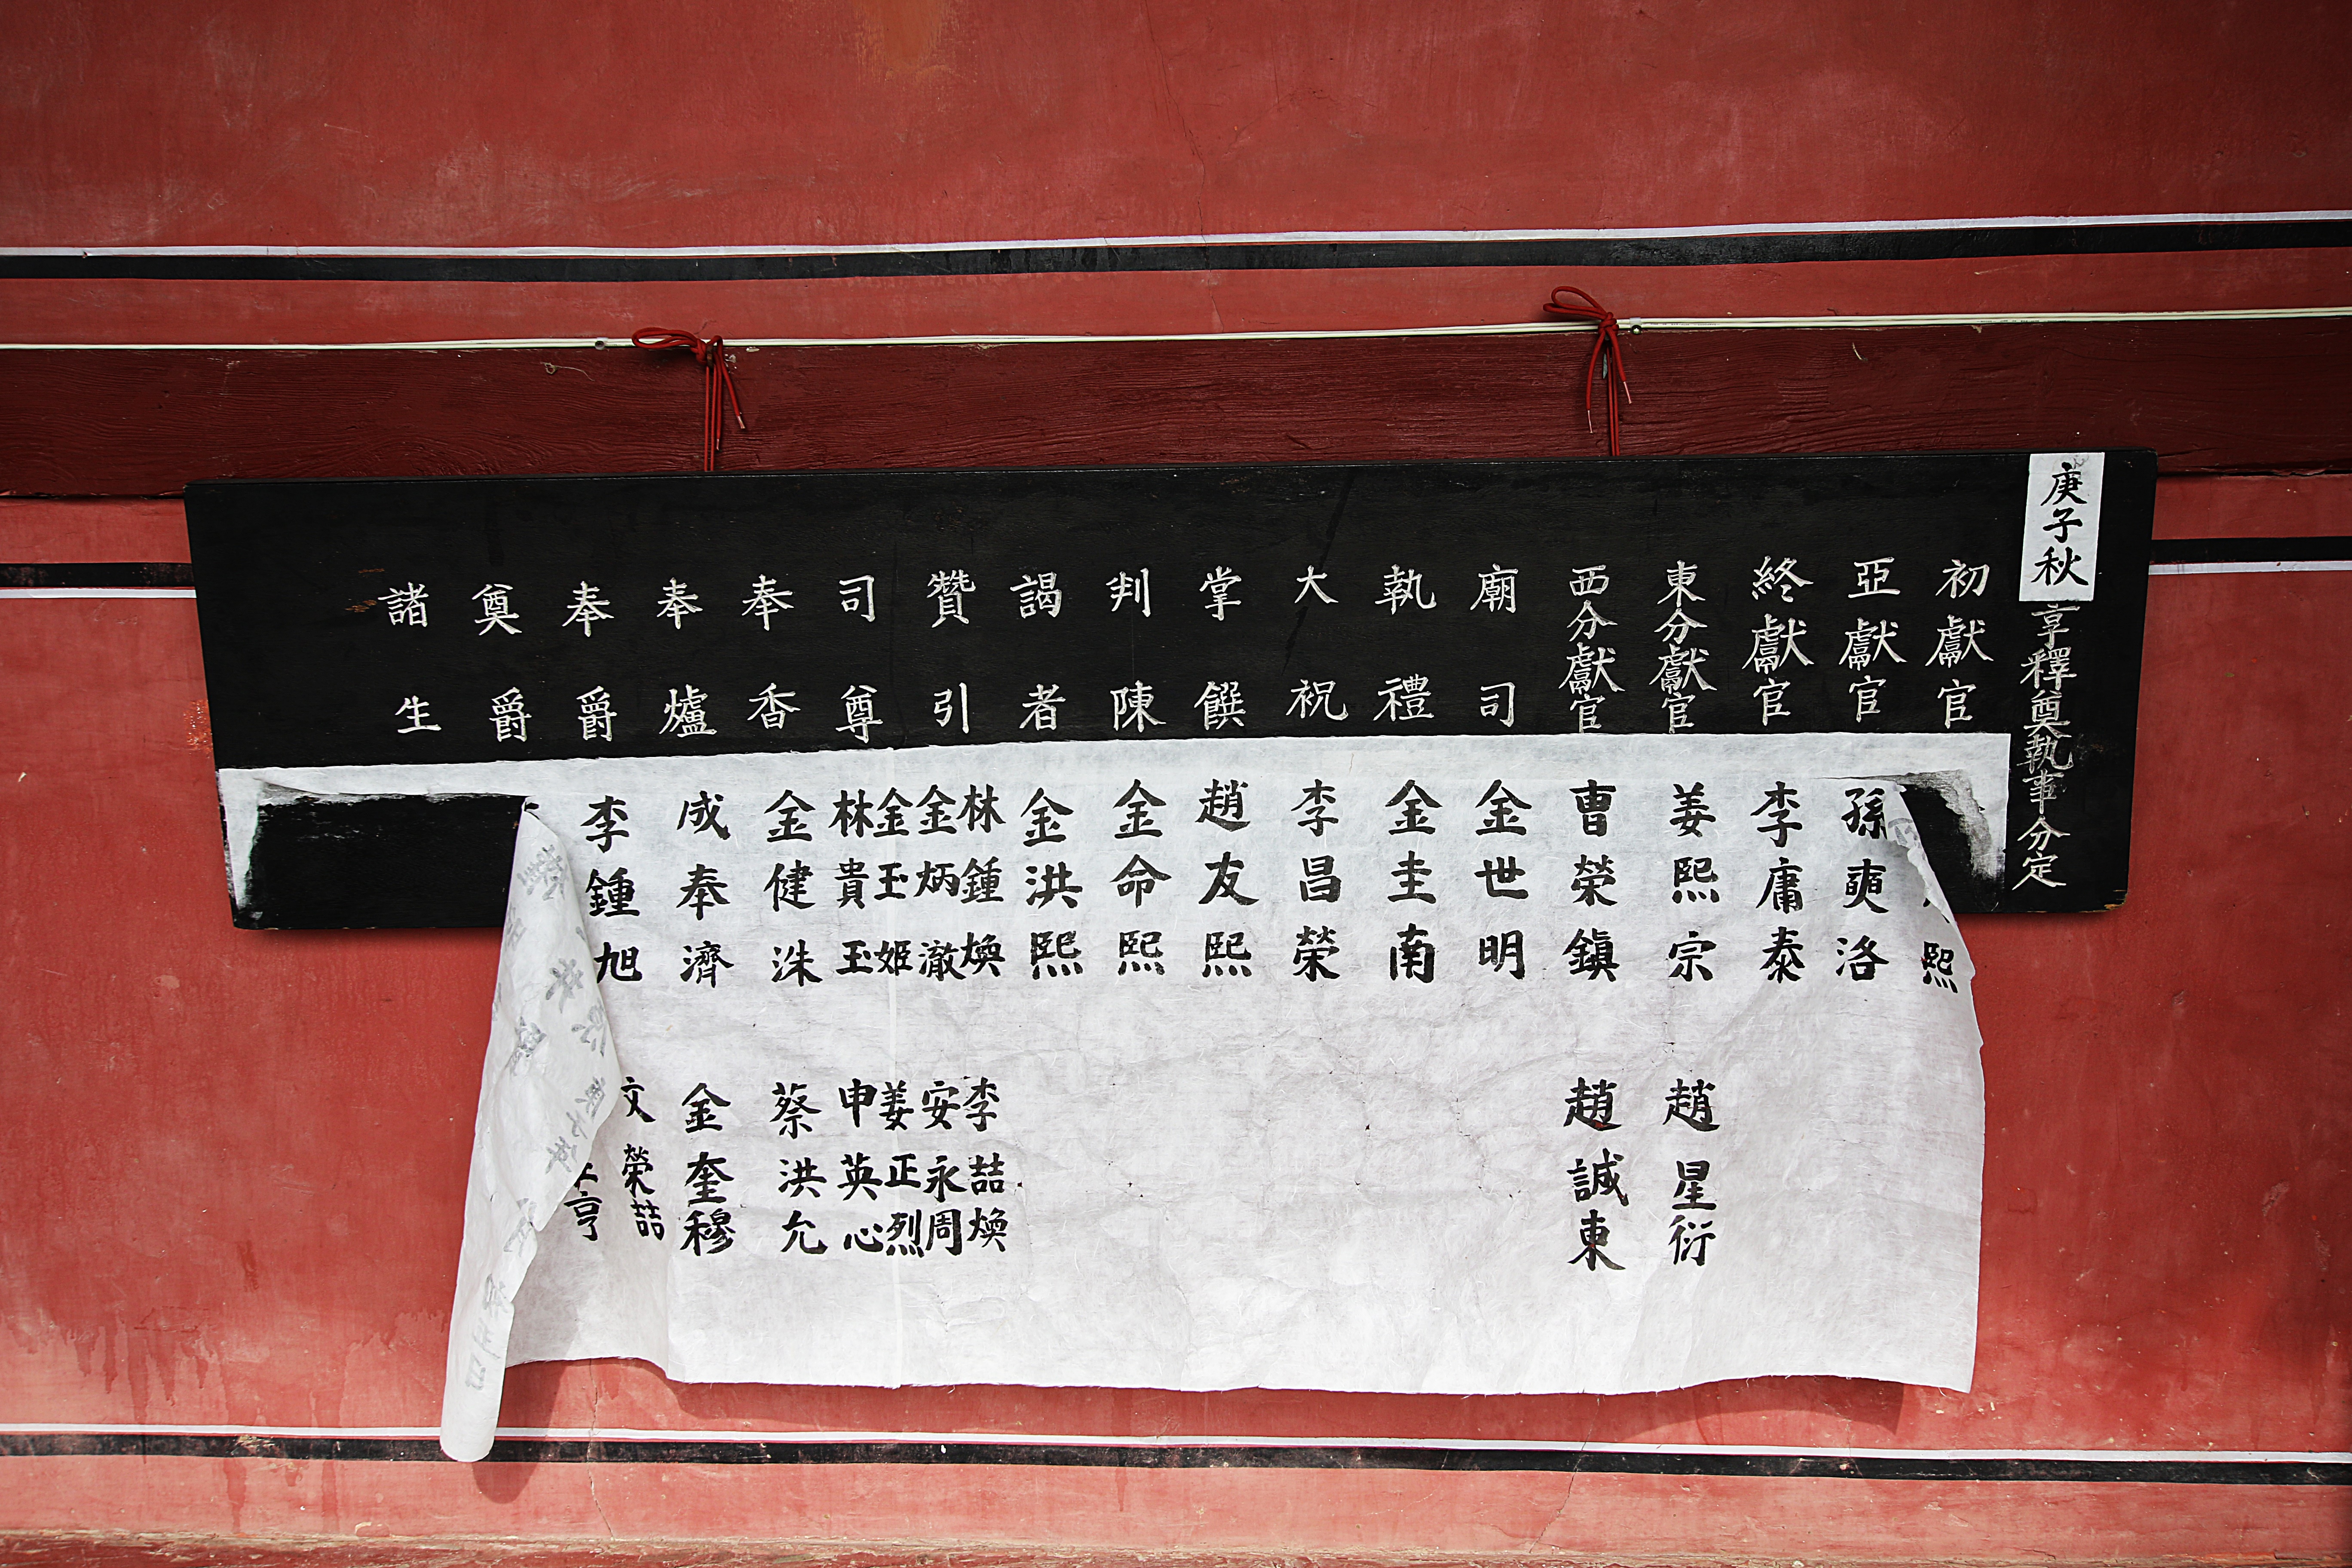 庚子秋享釋奠執事分定
初獻官
亞獻官
終獻官
東分獻官
西分獻官
廟司
執禮
大祝
掌饌
判陳
謁者
贊引
司尊
奉香
奉爐
奉爵
奠爵
諸生
熙
孫奭洛
李庸泰
姜熙宗
曺榮鎭
金世明
金圭南
李昌榮
趙友熙
金命熙
金洪熙
林鍾煥
金炳澈
金玉姬
林貴玉
金健洙
成奉濟
李鍾旭
趙星衍
趙誠東
李喆煥
安永周
姜正烈
申英心
蔡洪允
金奎穆
文榮喆
亨